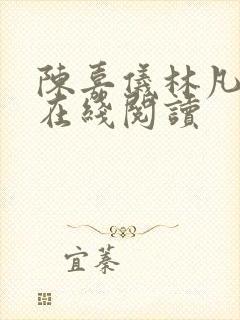 陳嘉儀林凡
在綫閱讀
宜蓁